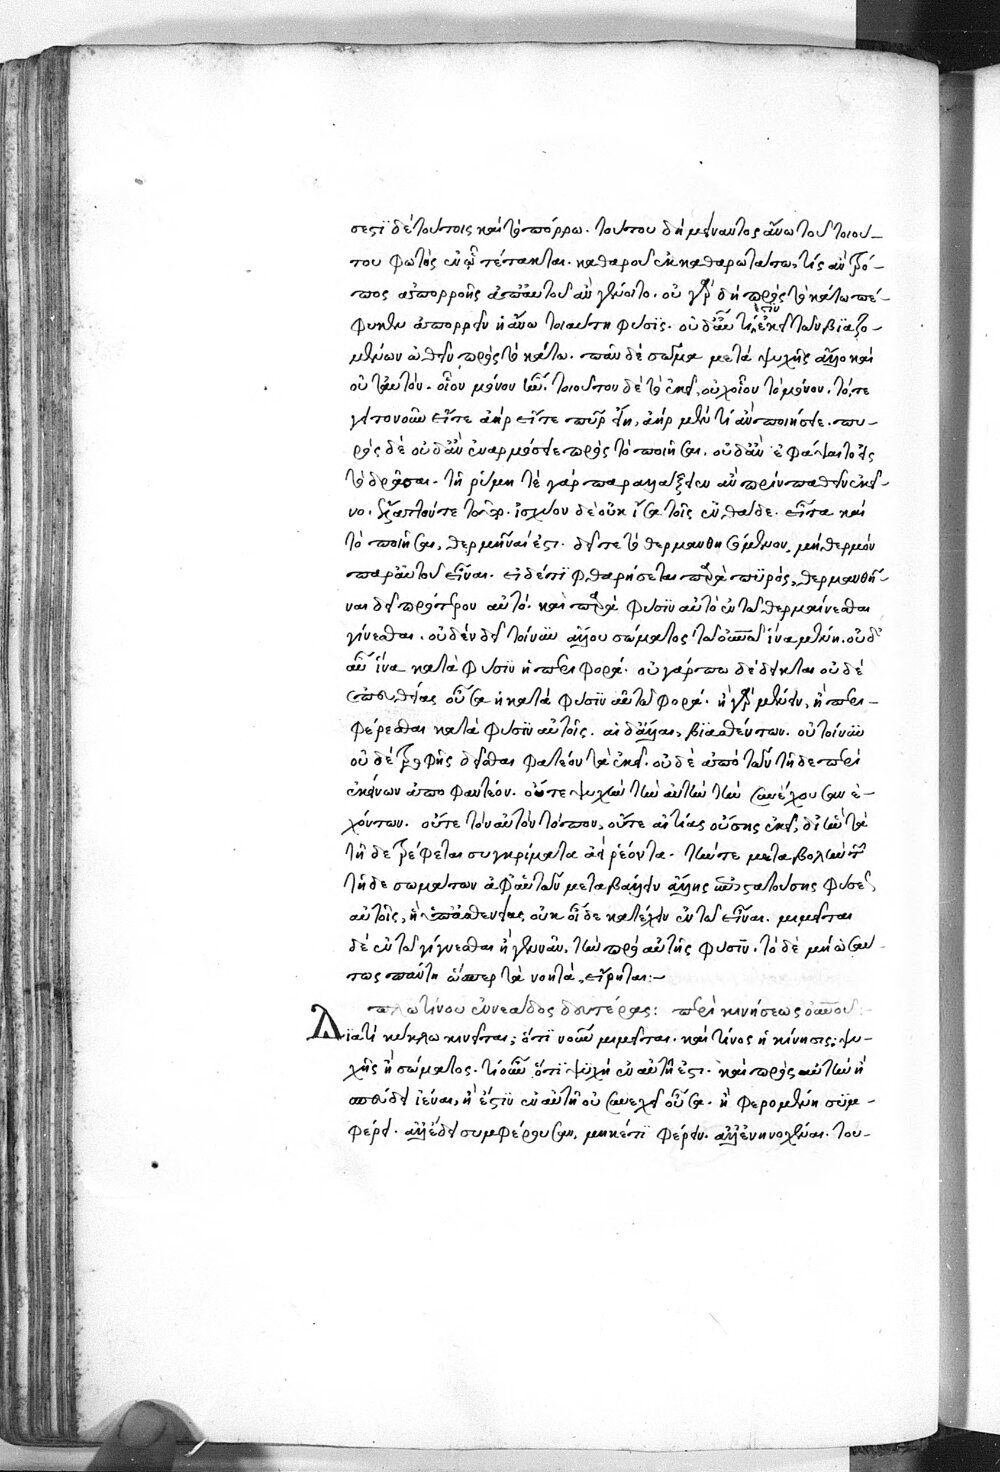 σεστι δὲ τούτοις καὶ τὸ πόρρω. τούτου δὴ μείναντος ἄνω τοῦ τοιού-
του φωτὸς ἐν ᾧ τέτακται. καθαροῦ ἐν καθαρωτάτω, τίς ἂν τρό-
πος ἀπορροῆς ἀπ' αὐτοῦ ἂν γένοιτο. οὐ γὰρ δὴ πρὸς τὸ κάτω πέ-
φυκεν ἀπορρεῖν ἡ ἄνω τοιαύτη φύσις. οὐδ' αὖ τί ἐστιν ἐκεῖ τῶν βιαζο-
μένων ὠθεῖν πρὸς τὸ κάτω. πᾶν δὲ σῶμα μετὰ ψυχῆς ἄλλο καὶ
οὐ ταὐτόν. οἷον μόνον ἦν. τοιοῦτον δὲ τὸ ἐκεῖ, οὐχ οἷον τὸ μόνον. τό τε
γειτονοῦν εἴτε ἀὴρ εἴτε πῦρ εἴη, ἀὴρ μὲν τί ἂν ποιήσειε. πυ-
ρὸς δὲ οὐδ' ἂν ἐναρμόσειε πρὸς τὸ ποιῆσαι. οὐδ' ἂν ἐφάψαιτο εἰς
τὸ δρᾶσαι. τῇ ῥύμη τὲ γὰρ παραλλάξειεν ἂν πρὶν παθεῖν ἐκεῖ-
νο. ἔλαττόν τε τοῦτο. ἰσχύον δὲ οὐκ ἴσα τοῖς ἐνθάδε. εἶτα καὶ
τὸ ποιῆσαι, θερμῆναί ἐστι. δεῖ τε τὸ θερμανθησόμενον, μὴ θερμὸν
παρ' αὐτοῦ εἶναι. εἰ δέ τι φθαρήσεται παρὰ πυρός, θερμανθῆ-
ναι δεῖ πρότερον αὐτό. καὶ παρὰ φύσιν αὐτὸ ἐν τῷ θερμαίνεσθαι
γίνεσθαι. οὐδὲν δεῖ τοίνυν ἄλλου σώματος τῷ οὐρανῷ ἵνα μένη. οὐδ'
αὖ ἵνα κατὰ φύσιν ἡ περιφορά. οὐ γάρ πω δέδεικται οὐδὲ
ἐπ' εὐθείας οὖσα ἡ κατὰ φύσιν αὐτῷ φορά. ἢ γὰρ μένειν, ἢ περι-
φέρεσθαι κατὰ φύσιν αὐτοῖς. αἱ δ' ἄλλαι, βιασθέντων. οὐ τοίνυν
οὐδὲ τροφῆς δεῖσθαι φατέον τὰ ἐκεῖ. οὐδὲ ἀπὸ τῶν τῇδε περὶ
ἐκείνων ἀποφαντέον. οὔτε ψυχὴν τὴν αὐτὴν τὴν συνέχουσαν ἐ-
χόντων. οὔτε τὸν αὐτὸν τόπον, οὔτε αἰτίας οὔσης ἐκεῖ, δι' ἣν τὰ
τῇδε τρέφεται συγκρίματα ἀεὶ ῥέοντα. τήν τε μεταβολὴν τῶν
τῇδε σωμάτων ἀφ' αὑτῶν μεταβάλλειν ἄλλης ἐπιστατούσης φύσεως
αὐτοῖς, ἣ ὑπ' ἀσθενείας οὐκ οἶδε κατέχειν ἐν τῷ εἶναι. μιμεῖται
δὲ ἐν τῷ γίγνεσθαι ἢ γεννᾶν, τὴν πρὸ αὐτῆς φύσιν. τὸ δὲ μὴ ὡσαύ-
τως πάντη ὥσπερ τὰ νοητά, εἴρηται:-
πλωτίνου ἐννεάδος δευτέρας: περὶ κινήσεως οὐρανοῦ:
Διατί κύκλω κινεῖται; ὅτι νοῦν μιμεῖται. καὶ τίνος ἡ κίνησις; ψυ-
χῆς ἢ σώματος. τί οὖν ὅτι ψυχὴ ἐν αὐτῇ ἐστι. καὶ πρὸς αὐτὴν ἢ
σπεύδει ἰέναι, ἢ ἔστιν ἐν αὐτῇ οὐ συνεχεῖ οὖσα. ἢ φερομένη συμ-
φέρει. ἀλλ' ἔδει συμφέρουσαν, μηκέτι φέρειν. ἀλλ' ἐνηνοχέναι. του-